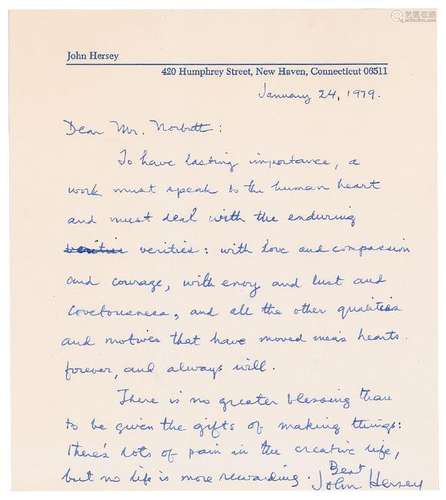 John Hersey
420 Humphrey Street, New Haven, Connecticut 06511
January 24, 1979.
Dear Mr.
To have lasting importance, a
work must speak to the human heart
and must deal with the enduring
verities: with love and compassion
and courage, with envy and lust and
covetousness, and all the other qualities
and motives that have moved men's hearts
forever, and always will.
There is no greater blessing than
to be given the gifts of making things:
There's lots of pain in the creative life,
but no life is more rewarding.
Best
John Hersey